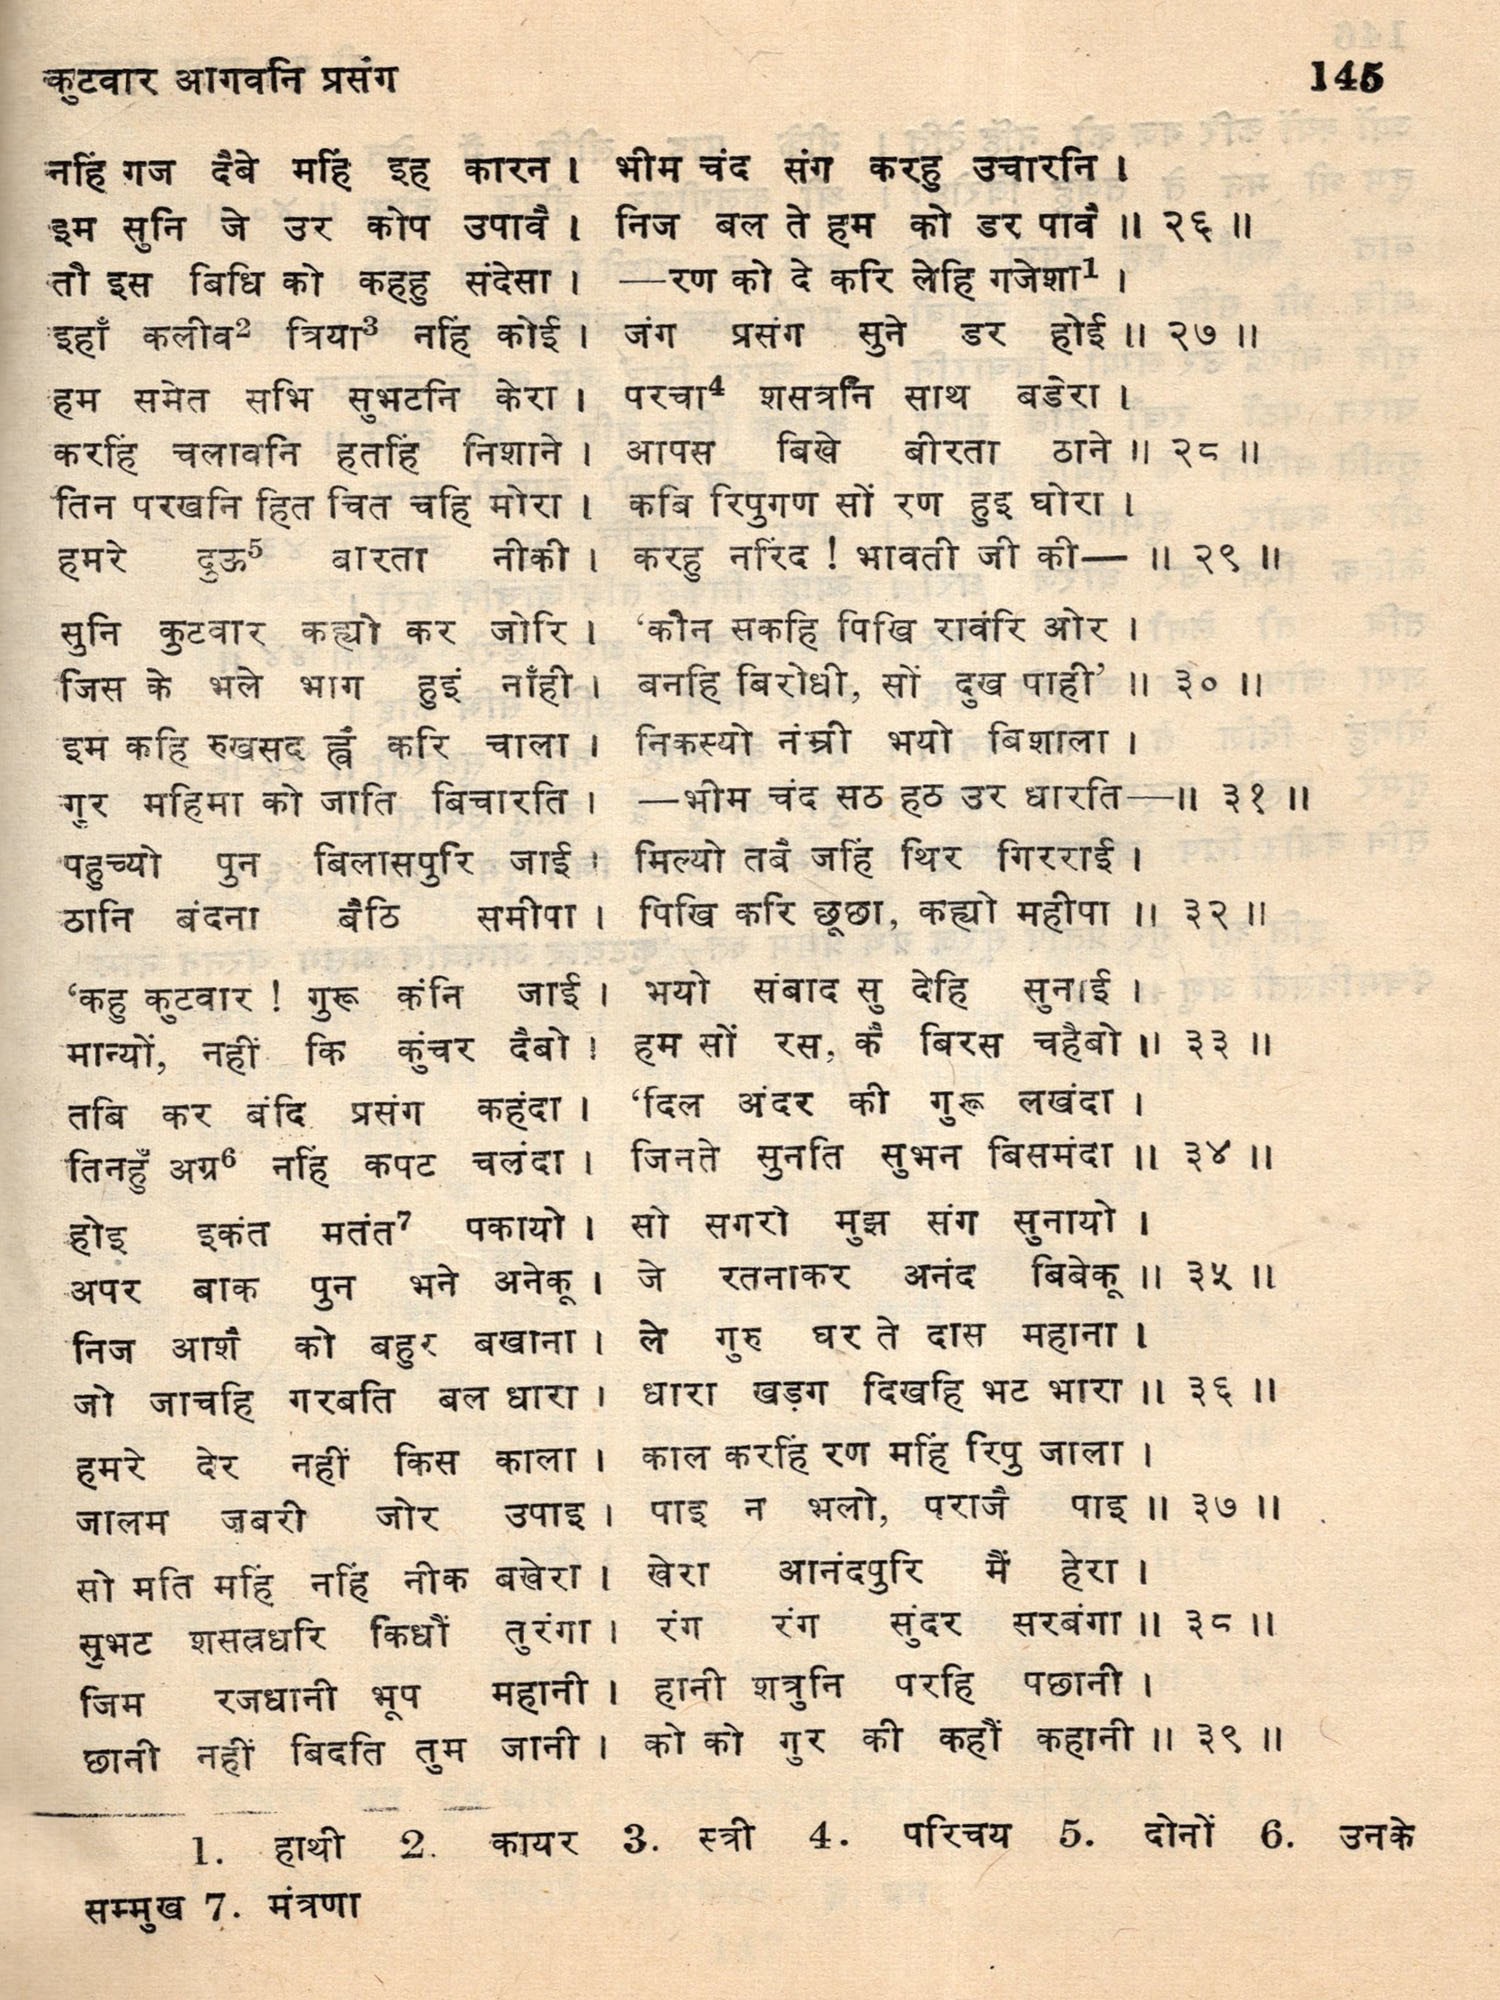 कुटवार आगवनि प्रसंग 145
नहिं गज दैबे महिं इह कारन । भीम चंद संग करहु उचारनि ।
इम सुनि जे उर कोप उपावैं । निज बल ते हम को डर पावैं ॥ २६ ॥
तौ इस बिधि को कहहु संदेसा । —रण को दे करि लेहि गजेशा¹ ।
इहाँ कलीव² त्रिया³ नहिं कोई । जंग प्रसंग सुने डर होई ॥ २७ ॥
हम समेत सभि सुभटनि केरा । परचा⁴ शसत्रनि साथ बडेरा ।
करहिं चलावनि हतहिं निशाने । आपस बिखे बीरता ठाने ॥ २८ ॥
तिन परखनि हित चित चहि मोरा । कबि रिपुगण सों रण हुइ घोरा ।
हमरे दुऊ⁵ बारता नीकी । करहु नरिंद ! भावती जी की— ॥ २९ ॥
सुनि कुटवार कह्यो कर जोरि । ‘कौन सकहि पिखि रावंरि ओर ।
जिस के भले भाग हुइं नाँही । बनहि बिरोधी, सों दुख पाही’ ॥ ३० ॥
इम कहि रुखसद ह्वै करि चाला । निकस्यो नंम्री भयो बिशाला ।
गुर महिमा को जाति बिचारति । —भीम चंद सठ हठ उर धारति—॥ ३१ ॥
पहुच्यो पुन बिलासपुरि जाई । मिल्यो तबै जहिं थिर गिरराई ।
ठानि बंदना बैठि समीपा । पिखि करि छूछा, कह्यो महीपा ॥ ३२ ॥
‘कहु कुटवार ! गुरू कंनि जाई । भयो संबाद सु देहि सुनाई ।
मान्यों, नहीं कि कुंचर दैबो । हम सों रस, कै बिरस चहैबो ॥ ३३ ॥
तबि कर बंदि प्रसंग कहंदा । ‘दिल अंदर की गुरू लखंदा ।
तिनहुँ अग्र⁶ नहिं कपट चलंदा । जिनते सुनति सुभन बिसमंदा ॥ ३४ ॥
होइ इकंत मतंत⁷ पकायो । सो सगरो मुझ संग सुनायो ।
अपर बाक पुन भने अनेकू । जे रतनाकर अनंद बिबेकू ॥ ३५ ॥
निज आशै को बहुर बखाना । ले गुरु घर ते दास महाना ।
जो जाचहि गरबति बल धारा । धारा खड़ग दिखहि भट भारा ॥ ३६ ॥
हमरे देर नहीं किस काला । काल करहिं रण महिं रिपु जाला ।
जालम जबरी जोर उपाइ । पाइ न भलो, पराजै पाइ ॥ ३७ ॥
सो मति महिं नहिं नीक बखेरा । खेरा आनंदपुरि मैं हेरा ।
सुभट शसत्रधरि किधौं तुरंगा । रंग रंग सुंदर सरबंगा ॥ ३८ ॥
जिम रजधानी भूप महानी । हानी शत्रुनि परहि पछानी ।
छानी नहीं बिदति तुम जानी । को को गुर की कहौं कहानी ॥ ३९ ॥
1. हाथी 2. कायर 3. स्त्री 4. परिचय 5. दोनों 6. उनके
सम्मुख 7. मंत्रणा